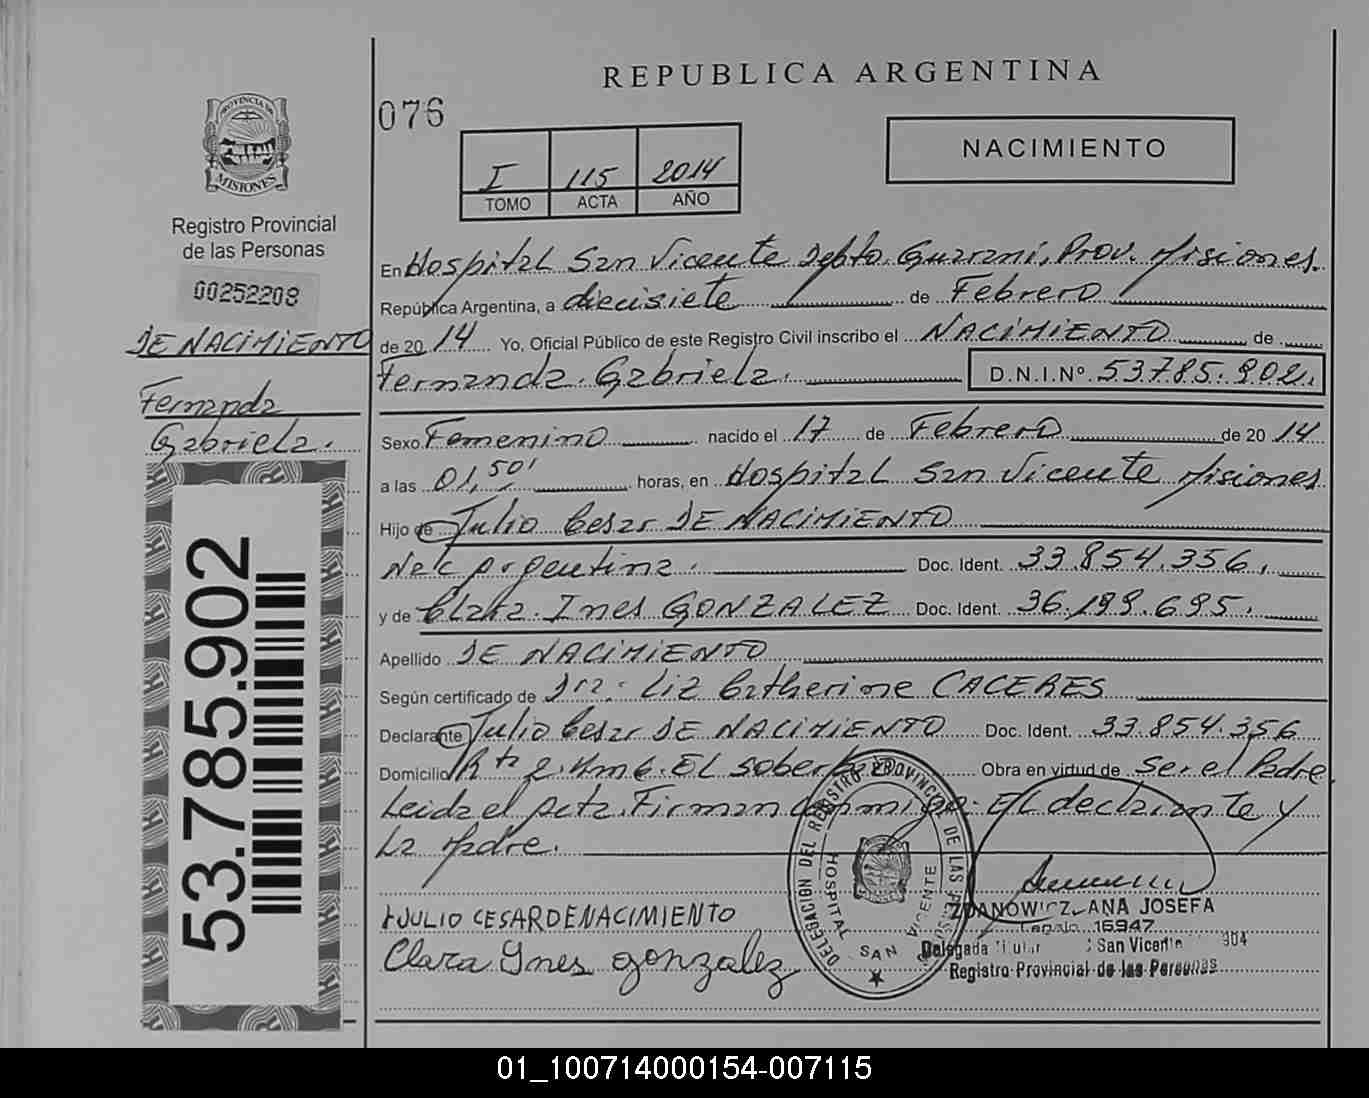 REPUBLICA ARGENTINA
076
NACIMIENTO
I 115 2014
TOMO ACTA AÑO
PROVINCIA DE
MISIONES
Registro Provincial
de las Personas
00252208
DE NACIMIENTO
Fernanda
Gabriela.
53.785.902
En Hospital San Vicente Depto. Guaraní, Prov. Misiones.
República Argentina, a diecisiete de Febrero
de 20 14 Yo, Oficial Público de este Registro Civil inscribo el NACIMIENTO de
Fernanda. Gabriela. D.N.I.Nº 53.785.902.
Sexo Femenino nacido el 17 de Febrero de 20 14
a las 01,50' horas, en Hospital San Vicente Misiones
Hijo de Julio Cesar DE NACIMIENTO
Nac Argentina. Doc. Ident. 33.854.356.
y de Clara. Ines GONZALEZ Doc. Ident. 36.199.695.
Apellido DE NACIMIENTO
Según certificado de Dra: Liz Catherine CACERES
Declarante Julio Cesar DE NACIMIENTO Doc. Ident. 33.854.356
Domicilio Rta 2. Km 6. EL Soberbio Obra en virtud de Ser el Padre
Leida el Acta. Firman conmigo: EL declarante y
La Madre.
JULIO CESAR DE NACIMIENTO
Clara Ynes gonzalez
DELEGACION DEL REGISTRO PROVINCIAL DE LAS PERSONAS
HOSPITAL SAN VICENTE
ZDANOWICZ, ANA JOSEFA
Legajo 16947
Delegada Titular San Vicente 904
Registro Provincial de las Personas
01_100714000154-007115